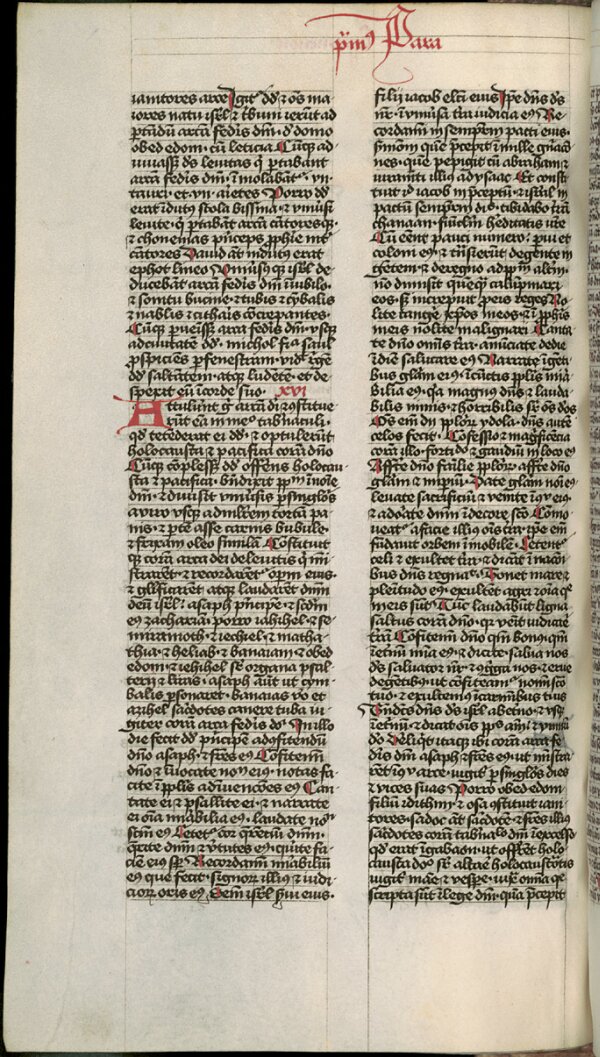 p̄mꝰ Para
ianitores arce Igit᷑ dd̄ ⁊ oēs ma
iores natu isrł ⁊ tͥbuni ierūt ad
portādā arcā fedīs dn̄i · d̓ domo
obed edom · cū leticia Cūqꝫ ad
iuuass̄ ds̄ leuitas q̄ ꝑtabant
arcā fedīs dn̄i · īmolabāt᷑ · vij
tauri · et · vij · arietes Porro dd̄
erat īdutꝰ stola bissina · ⁊ vniūsi
leuite · q̄ portabāt arcā cātoresqꝫ ·
⁊ chonenias prīceps ꝓph̄ie int̓
cātores Dauid āt indutus erat
ephot lineo Vniūsusqꝫ isrł de
ducebāt arcā fedīs dn̄i iniubilo ·
⁊ sonitu bucine · ⁊ tubis ⁊ cȳbalis
⁊ nablis ⁊ citharis cōcrepantes ·
Cūqꝫ ꝑueniss̄ arca fedīs dn̄i · vsqꝫ
adciuitatē dd̄ · michol fīa saul
ꝓspiciēs ꝑfenestram · vidit rēgē
dd̄ saltātem · atqꝫ ludētē · et de
spexit eū icorde suo · xvi
Attulūnt g̊ arcā dī ⁊ ꝯstitue
rūt eā in medͦ tab̄naculi ·
qd̓ tetēderat ei dd̄ · ⁊ optulerūt
holocausta ⁊ pacifica corā dn̄o
Cūqꝫ cōpless̄ dd̄ offerēs holocau
sta ⁊ pacifica · bn̄dixit ppłm īnoīe
dn̄i · ⁊ diuisit vniūsis ꝑsinglōs
aviro vsqꝫ admłierem tortā pa
nis · ⁊ ꝑtē asse carnis bubule ·
⁊ frixam oleo similā Cōstituit
qꝫ corā arca dei deleuitis q̄ mi
strarēt · ⁊ recordarēt᷑ opm̄ eius ·
⁊ głificarēt atqꝫ laudarēt dn̄m
deū isrł · asaph prīcipē · ⁊ scd̄m
eiꝰ zachariā · porro iahihel · ⁊ se
miramoth · ⁊ iechiel · ⁊ matha
thia · ⁊ heliab · ⁊ banaiam · ⁊ obed
edom · ⁊ iehihel sr̄ organa psal
terij ⁊ liras · asaph aūt ut cym
balis ꝑsonaret · banaias vo᷑ et
azihel sac̓dotes canere tuba iu
giter corā arca fedīs dn̄i · Inillo
die fecit dd̄ prīcipem adꝯfitendū
dn̄o asaph · ⁊ fr̄es eiꝰ Cōfitemī
dn̄o ⁊ īuocate nom̄ eiꝰ · notas fa
cite ī ppłis adinuēciones eiꝰ Can
tate ei ⁊ psallite ei · ⁊ narrate
ei oīa mirabilia eiꝰ · laudate nom̄
scm̄ eiꝰ Letet᷑ cor q̄rētiū dn̄m ·
Q̄rite dn̄m ⁊ v̓tutes eiꝰ · quite fa
ciē eiꝰ sꝑ Recordamī mirabiliū
eiꝰ que fecit · signor̄ illiꝰ ⁊ iudi
cior̄ oris eiꝰ Semē isrł s̓ui eius ·
filij iacob elc̄ti eius Ipē dn̄s ds̄
nr̄ · ī vniūsa tr̄a iudicia eiꝰ Re
cordamī ī sempitnū pacti eius ·
sm̄onis que p̄cepit ī mille gnāco
nes · que pepigit cū abraham · ⁊
iuramti illiꝰ adysaac Et const
tuit id̓ iacob in p̄ceptū · ⁊ isrł · in
pactū sempitnū dic̄ · tibi dabo tr̄ā
chanaan · funiclm̄ heditatis vr̄e
Cū eēnt pauci numero · pui et
coloni eiꝰ · ⁊ trāsierūt degēte in
gētem · ⁊ deregno adpplm̄ altm̄
nō dimisit queqꝫ calūpniari
eos · sꝫ īcrepuit ꝓ eis reges No
lite tangere xp̄os meos · ⁊ ī ꝓph̄is
meis nolite malignari Canta
te dn̄o omīs tr̄a · anūciate dedie
ī diē salutare eiꝰ Narrate ī gēti
bus gloriam eiꝰ · ī cūctis pplīs mira
bilia eiꝰ · qa magnꝰ dn̄s ⁊ lauda
bilis nimis · ⁊ horribilis sr̄ oēs dos
Oēs em̄ dīi pplor̄ ydola · dn̄s aūte
celos fecit · Cōfessio ⁊ magficēcia
corā illo · fortido ⁊ gaudiū ī loco eiꝰ
Affr̄te dn̄o familie pplor̄ · affr̄te dn̄o
glām ⁊ imꝑiū · Date glām noī eiꝰ
leuate sacrificiū ⁊ venite ī ꝯspectu eiꝰ ·
⁊ adorate dn̄m īdecore scō Cōmo
ueat᷑ afacie illiꝰ oīs tr̄a · ipē em̄
fundauit orbem īmobilē · Letent᷑
celi ⁊ exultet tr̄a · ⁊ dicāt ī nacio
bus dn̄s regnauit · Tonet mare ⁊
plenitudo eiꝰ · exultēt agri ⁊ oīa q̄
ī eis sūt · Tūc laudabūt ligna
saltus corā dn̄o · qꝛ venit iudicare
tr̄ā Cōfitemī dn̄o qm̄ bonꝰ · qm̄
ī etn̄ū mīa eiꝰ · ⁊ dicite · salua nos
ds̄ saluator nr̄ · ⁊ ꝯgga nos · ⁊ erue
degētibꝰ · ut cōfiteamr̄ noī scō
tuo · ⁊ exultemꝰ ī carmībus tuis
Bn̄dcts̄ dn̄s ds̄ isrł abetno · ⁊ vsqꝫ
ī etn̄ū · ⁊ dicat oīs ppłs amē · ⁊ ymnū
dn̄o Deliq̄t itaqꝫ ibi corā arca fe
dīs dn̄i asaph ⁊ fr̄es eiꝰ · ut mīstra
rēt ī ꝯspectu arce · iugit᷑ ꝑsinglōs dies
⁊ vices suas Porro obed edom
filiū idithim · ⁊ osa ꝯstituit iani
tores · sadoc āt sac̓dotē · ⁊ fr̄es illiꝰ
sac̓dotes corā tab̄nałō dn̄i īexcelso
qd̓ erat ī gabaon · ut offr̄ēt holo
causta dn̄o sr̄ altare holocaustōtis
iugit᷑ māe ⁊ vesꝑe · iux̄ omīa qē
scripta sūt ī lege dn̄i · qūa p̄cepit